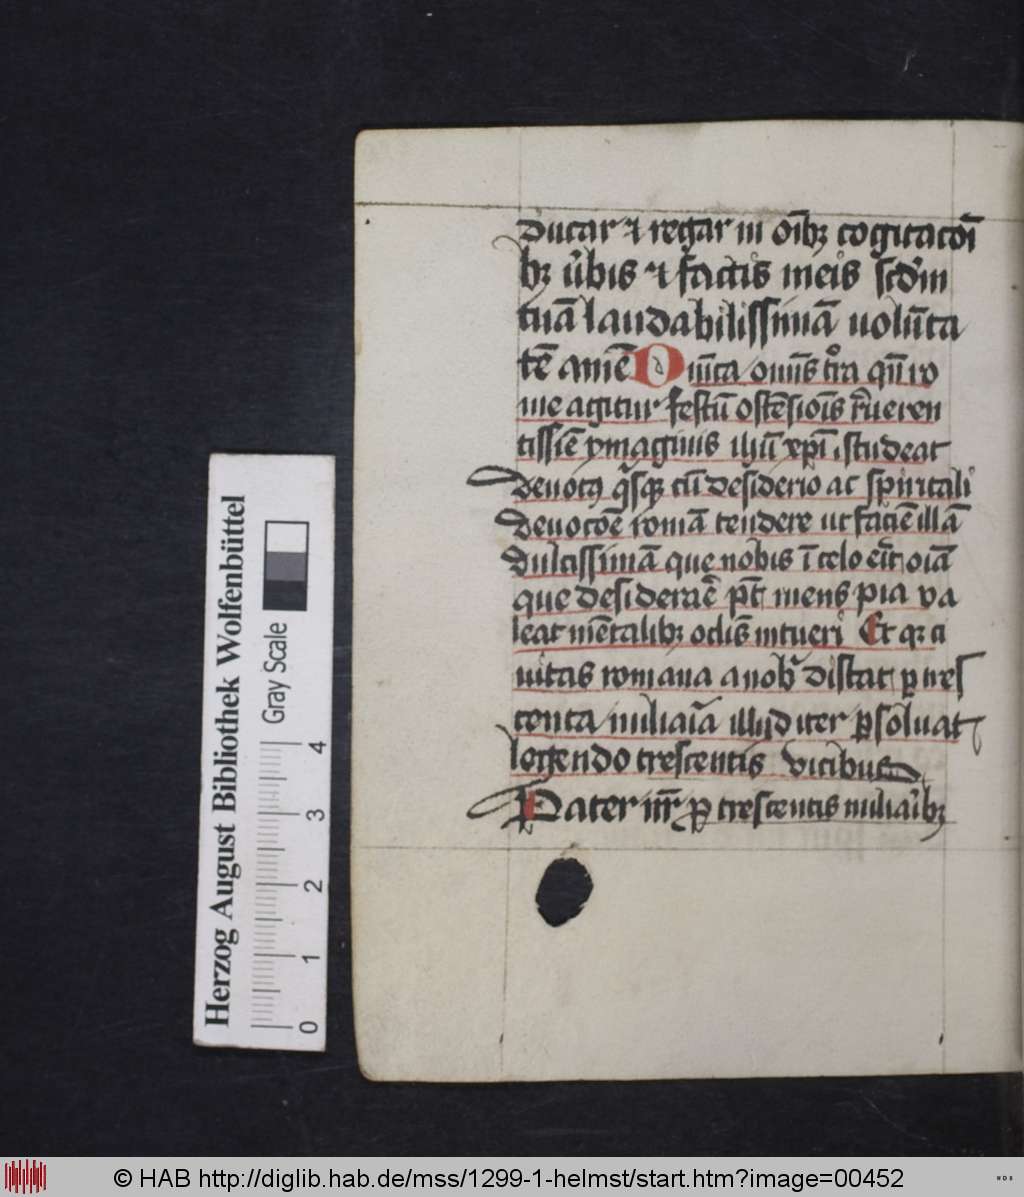 ducar ⁊ regar in oībꝫ cogitacōī
bꝫ v̄bis ⁊ factis meis scd̓m
tuā laudabilissimā uolūta
tē amē Dn̄ica om̄is tr̓a qn̄ ro
me agitur festū ostēsiōis r̓ueren
tissie ymaginis ihū xpī studeat
deuotꝰ q̄sqꝫ cū desiderio ac spiritali
deuocōe romā tendere ut faciē illā
dulcissimā que nobis ī celo erit oīa
que desiderare pt̄ mens pia va
leat mētalibꝫ oclis intueri Et qꝫ ci
uitas romana a nob̓ distat ꝑ tres
centa miliaria ille qd iter ꝑsoluat
legendo trescentis vicibus
Pater nr̄ ꝑ trescentis miliaribꝫ
Herzog August Bibliothek Wolfenbüttel
Gray Scale
0 1 2 3 4
© HAB http://diglib.hab.de/mss/1299-1-helmst/start.htm?image=00452